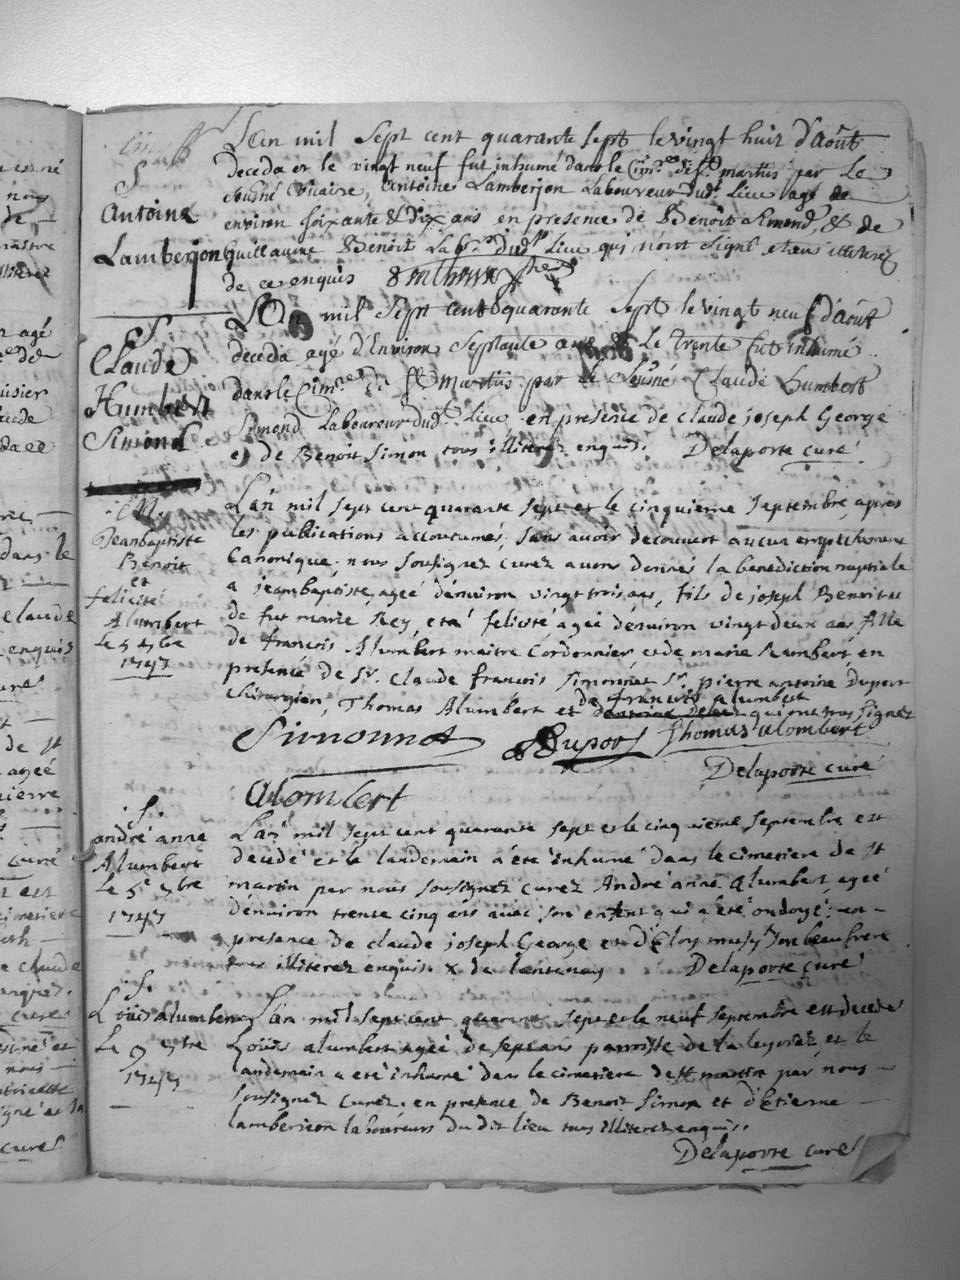 S
Antoine
Lamberjon
L'an mil Sept cent quarante sept le vingt huit d'août
deceda et le vingt neuf fut inhumé dans le Cim.re de St martin par le
Sousné Vicaire, Antoine Lamberjon Laboureur dud. Lieu agé de
environ soixante & dix ans en presence de Benoit Simond, & de
Guillaume Benoit Lab.r dud. Lieu qui n'ont signé etans illiterez
de ce enquis
S
Claude
Humbert
Simond
L'an mil Sept cent quarante Sept le vingt neuf d'août
deceda agé d'Environ Septante ans & Le trente fut inhumé
dans le Cim.re de St Martin par le Sousné Claude Humbert
Simond Laboureur dud. Lieu en presence de claude joseph George
et de Benoit Simon tous illiterez enquis. Delaporte curé
M.
Jeanbaptiste
Benoit
et
felicité
Alumbert
Le 5 7bre
1747
L'an mil sept cent quarante sept et le cinquieme Septembre, après
les publications accoutumés, sans avoir decouvert aucun empechement
Canonique. nous soussignez curez avons donnés la benediction nuptiale
a jeambaptiste, ageé d'environ vingt trois ans, fils de joseph Benoit et
de fut marie Rey, et a felicité ageé d'environ vingt deux ans fille
de francois Alumbert maitre Cordonnier et de marie Rambert, en
presence de Sr. Claude francois Simonnet Sr. pierre antoine Duport
Chirurgien, Thomas Alumbert et de francois alumbert qui ont tous signez
Simonnet Duport Thomas alombert
Delaporte curé
alombert
S.
andré anne
Alumbert
Le 5e 7bre
1747
L'an mil sept cent quarante sept et le cinquieme Septembre est
decedé et le landemain a été inhumé dans le cimetiere de St
martin par nous soussignez curez André anne alumbert ageé
d'environ trente cinq ans avec son enfent qui a été ondoyé, en
presence de claude joseph George et d'Eloy son beau frere
tous illiterez enquis. Delaporte curé
S.
Loüis Alumbert
Le 9 7bre
1747
L'an mil sept cent quarante sept et le neuf septembre est decedé
Loüis alumbert ageé de sept ans parroisse de la et le
landemain a eté inhumé dans le cimetiere de St martin par nous
soussignez Curez. en presence de Benoit Simon et d'Etienne
lamberjon laboureurs du dit lieu tous illiterez enquis.
Delaporte curé